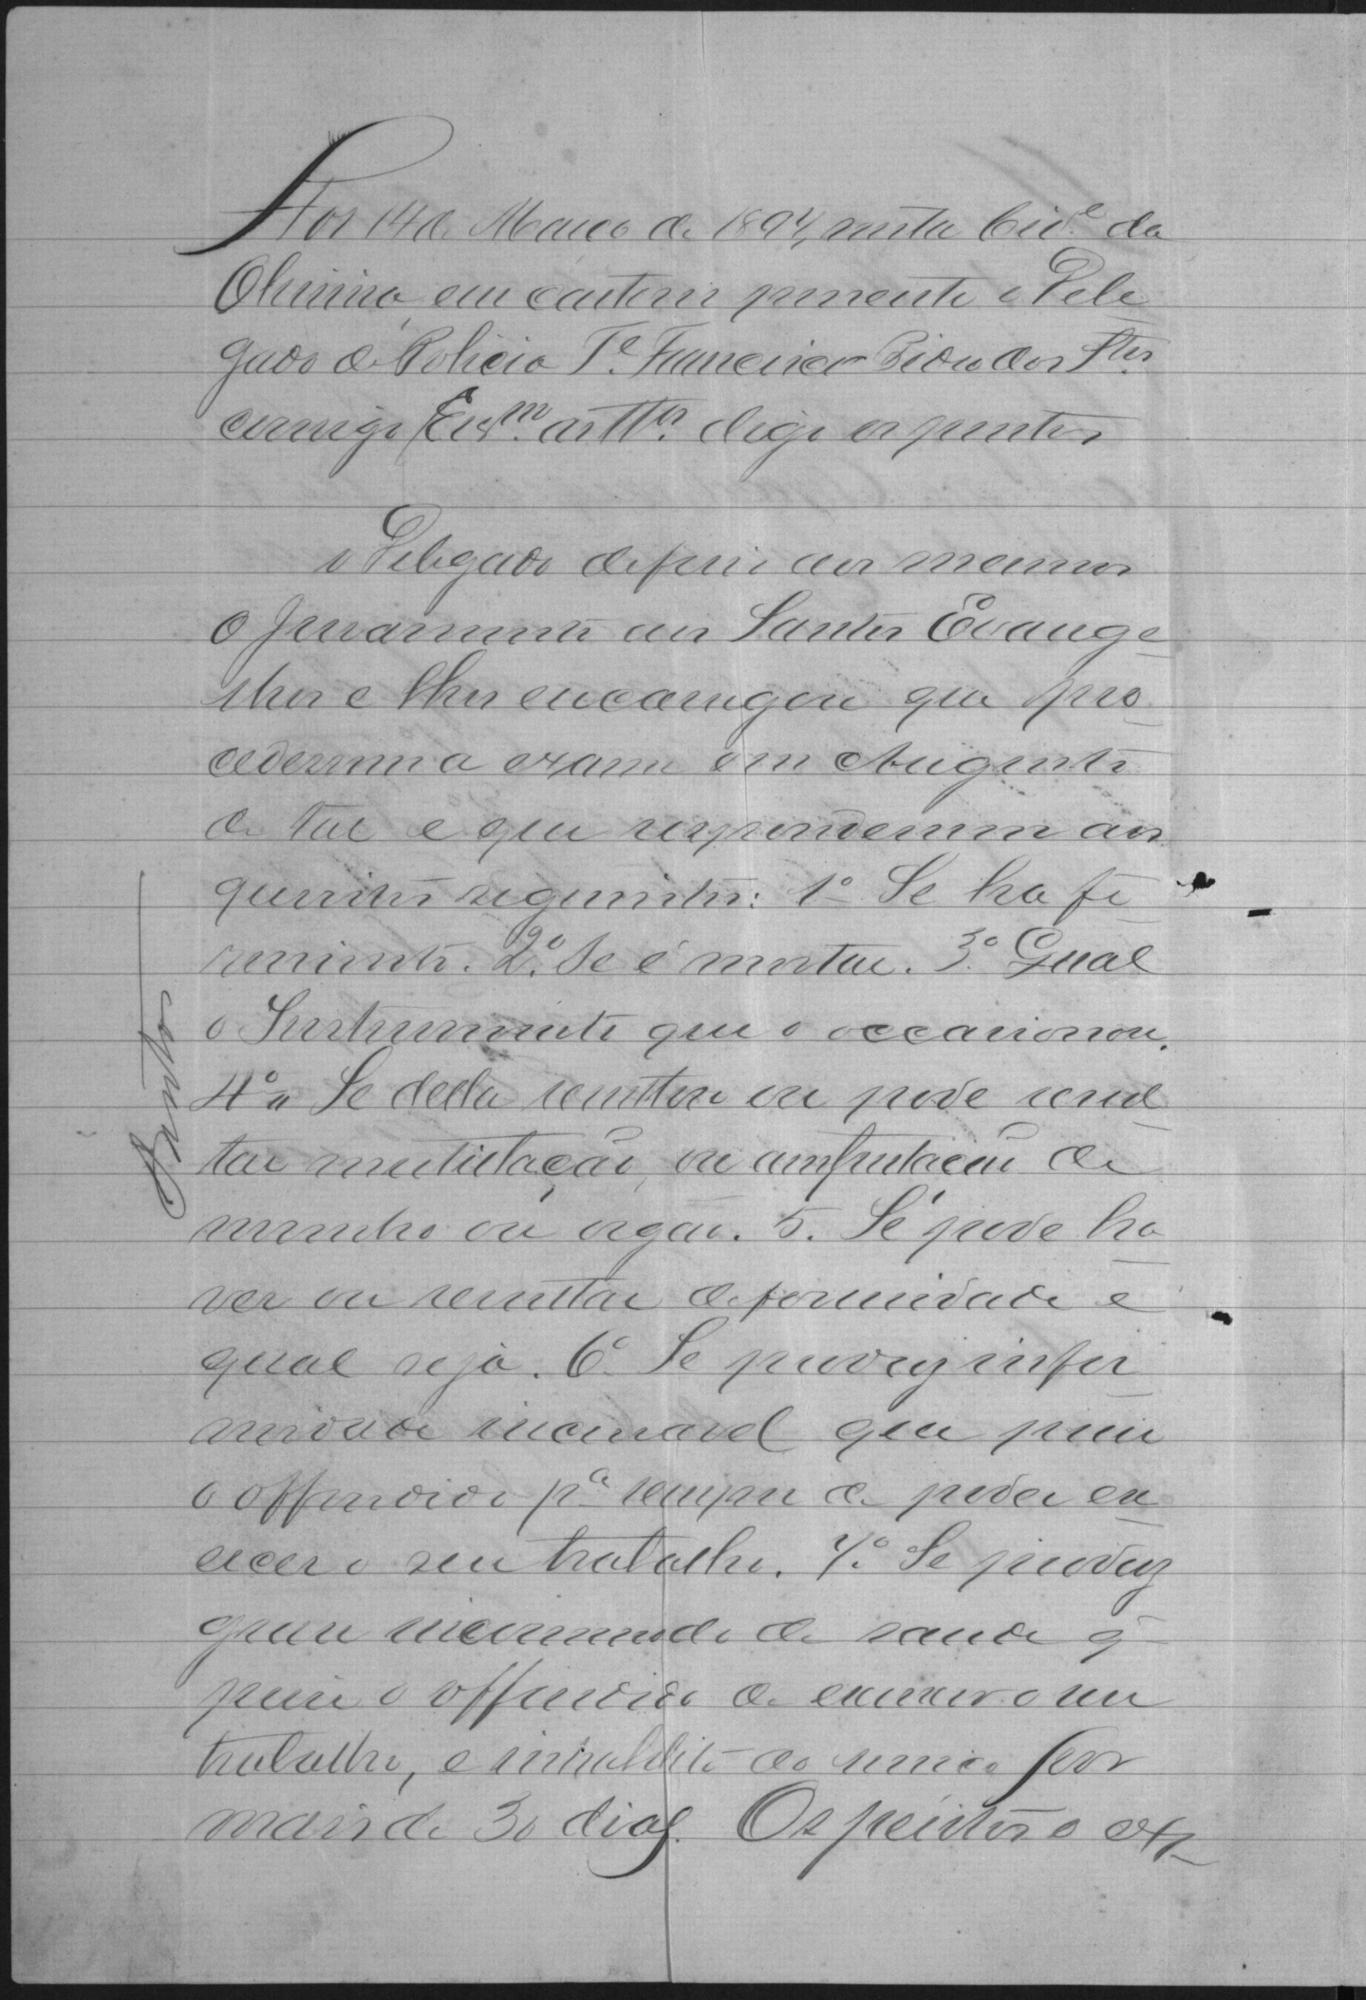 Aos 14 de Março de 1894, nesta Cid.e da
em cartorio presente o Dele
gado de Policia T.e Francisco dos Stos
comigo Escm. digo os peritos
o Delegado deferio aos mesmos
o Juramento aos Santos Evange
lhos e lhes encarregou que pro
cedessem a exame em Augusto
de tal e que respondessem aos
quesitos seguintes: 1º Se ha fe
rimento. 2.º Se é mortal. 3.º Qual
o Instrumento que o occasionou.
4º Se delle resultou ou pode resul
tar mutilação, ou amputação de
membro ou orgão. 5. Se pode ha
ver ou resultar deformidade e
qual seja. 6º Se produz infer
midade incuravel que prive
o offendido pª sempre de poder ex
ercer o seu trabalho. 7.º Se produz
grave incommodo de saude q
prive o offendido de exercer o seu
trabalho, e inhabilite do serviço por
mais de 30 dias. Os peritos o ex
Brittos